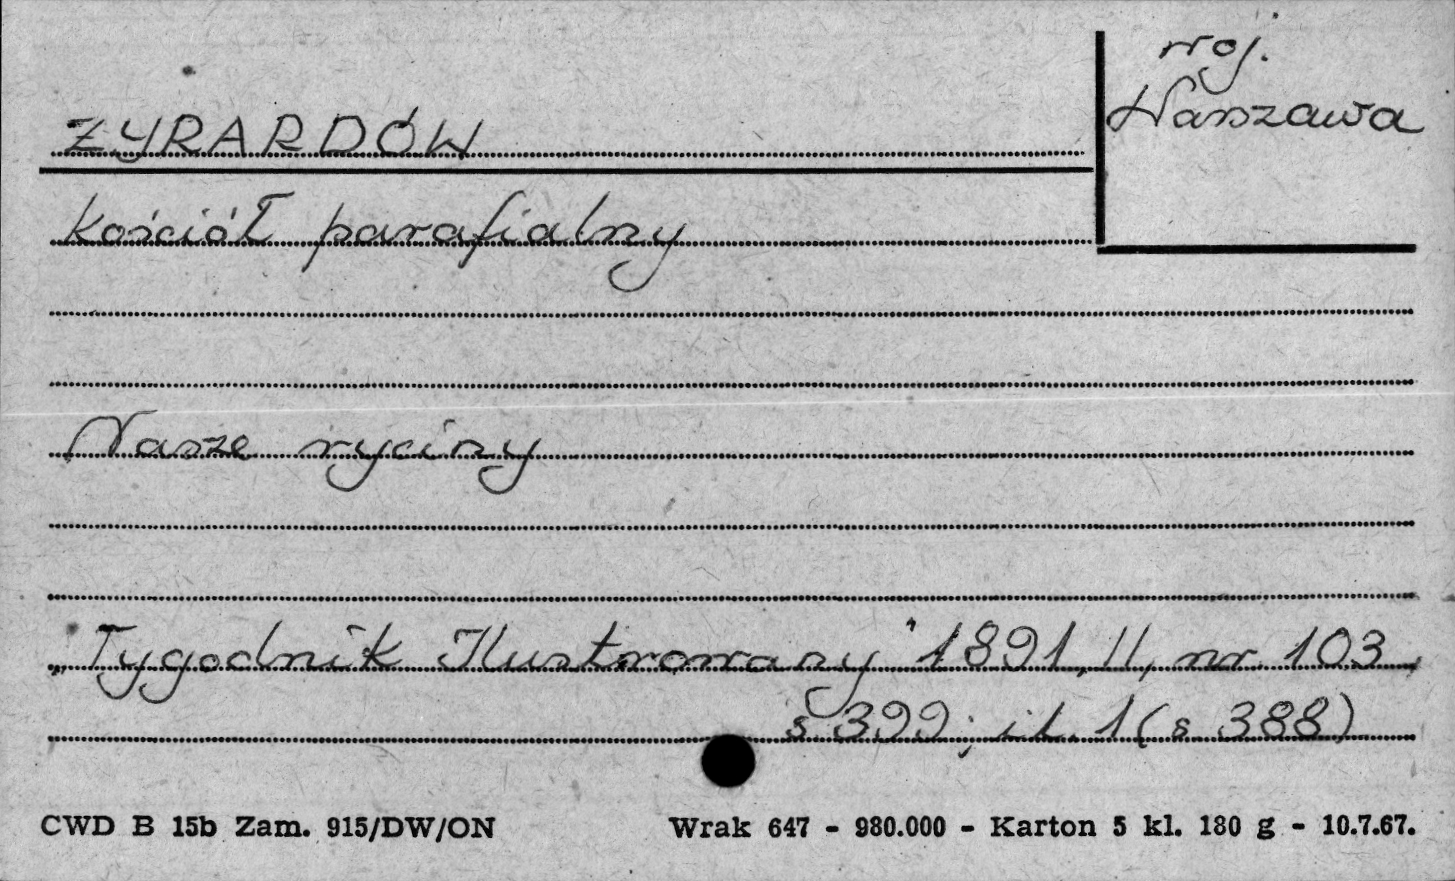 woj.
Warszawa
ŻYRARDÓW
kościół parafialny
Nasze ryciny
„Tygodnik Ilustrowany" 1891, II, nr 103,
s 399; il. 1 (s 388)
CWD B 15b Zam. 915/DW/ON Wrak 647 - 980.000 - Karton 5 kl. 180 g - 10.7.67.